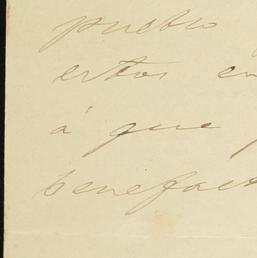 pueblo
estos en
á que
benefact